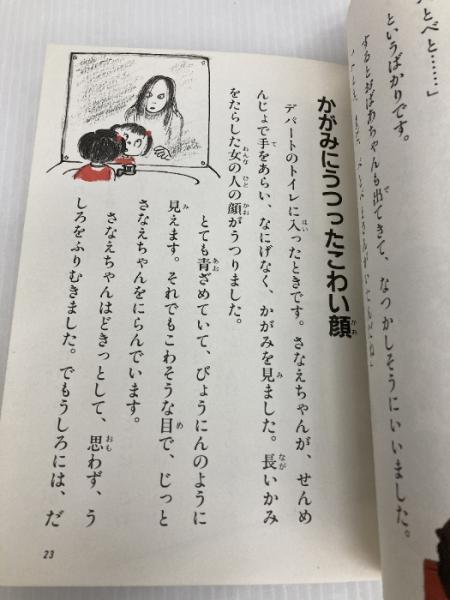 たとべと……」
というばかりです。
するとおばあちゃんも出てきて、なつかしそうにいいました。
かがみにうつったこわい顔
デパートのトイレに入ったときです。さなえちゃんが、せんめ
んじょで手をあらい、なにげなく、かがみを見ました。長いかみ
をたらした女の人の顔がうつりました。
とても青ざめていて、びょうにんのように
見えます。それでもこわそうな目で、じっと
さなえちゃんをにらんでいます。
さなえちゃんはどきっとして、思わず、う
しろをふりむきました。でもうしろには、だ
23